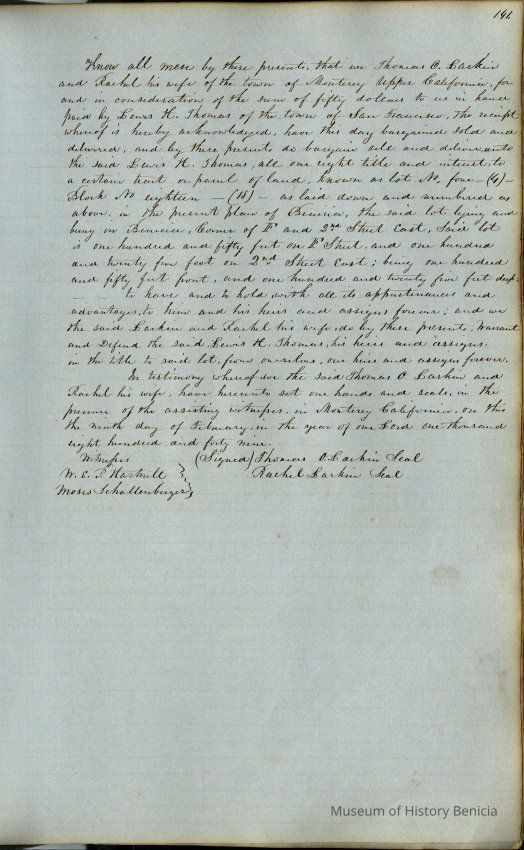 191.
Know all men by these presents, that we Thomas O. Larkin
and Rachel his wife of the town of Monterey Upper California, for
and in consideration of the sum of fifty dollars to us in hand
paid by Lewis H. Thomas of the town of San Francisco, the receipt
whereof is hereby acknowledged, have this day bargained sold and
delivered, and by these presents do bargain sell and deliver, unto
the said Lewis H. Thomas, all our right title and interest, to
a certain tract or parcel of land, known as lot No. four - (4) -
Block No eighteen - (18) - as laid down and numbered as
above, in the present plan of Benicia, the said lot lying and
being in Benicia, Corner of H and 2nd Street East, Said lot
is one hundred and fifty feet on H Street, and one hundred
and twenty five feet on 2nd Street East; being one hundred
and fifty feet front, and one hundred and twenty five feet deep,
- - - to have and to hold, with all its appurtenances and
advantages, to him and his heirs and assigns forever; and we
the said Larkin and Rachel his wife, do by these presents, warrant
and Defend the said Lewis H. Thomas, his heirs and assigns,
in the title to said lot, from ourselves, our heirs and assigns forever.
In testimony whereof we the said Thomas O. Larkin and
Rachel his wife, have hereunto set our hands and seals, in the
presence of the assisting witnesses, in Monterey California, on this
the ninth day of February, in the year of our Lord one thousand
eight hundred and forty nine.
Witnesses (Signed) Thomas O. Larkin Seal
W. E. P. Hartnell Rachel Larkin Seal
Moses Schallenberger
Museum of History Benicia